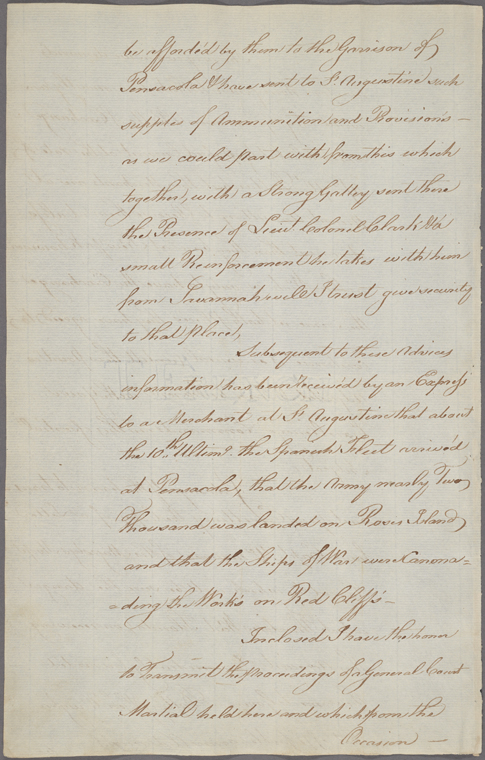 be afforded by them to the Garrison of
Pensacola & have sent to St. Augustine such
supplies of Ammunition and Provisions –
as we could part with from this which
together, with a Strong Galley sent there
the Presence of Lieut. Colonel Clark & a
small Reinforcement he takes with him
from Savannah will I trust give security
to that place,
Subsequent to these Advices
information has been Received by an Express
to a Merchant at St. Augustine that about
the 10th. Ultimo. the Spanish Fleet arrived
at Pensacola, that the Army nearly Two
Thousand was landed on Roses Island
and that the Ships of War were Canona=
=ding the Works on Red Cliffs –
Inclosed I have the honor
to Transmit the proceedings of a General Court
Martial held here and which from the
Occasion –